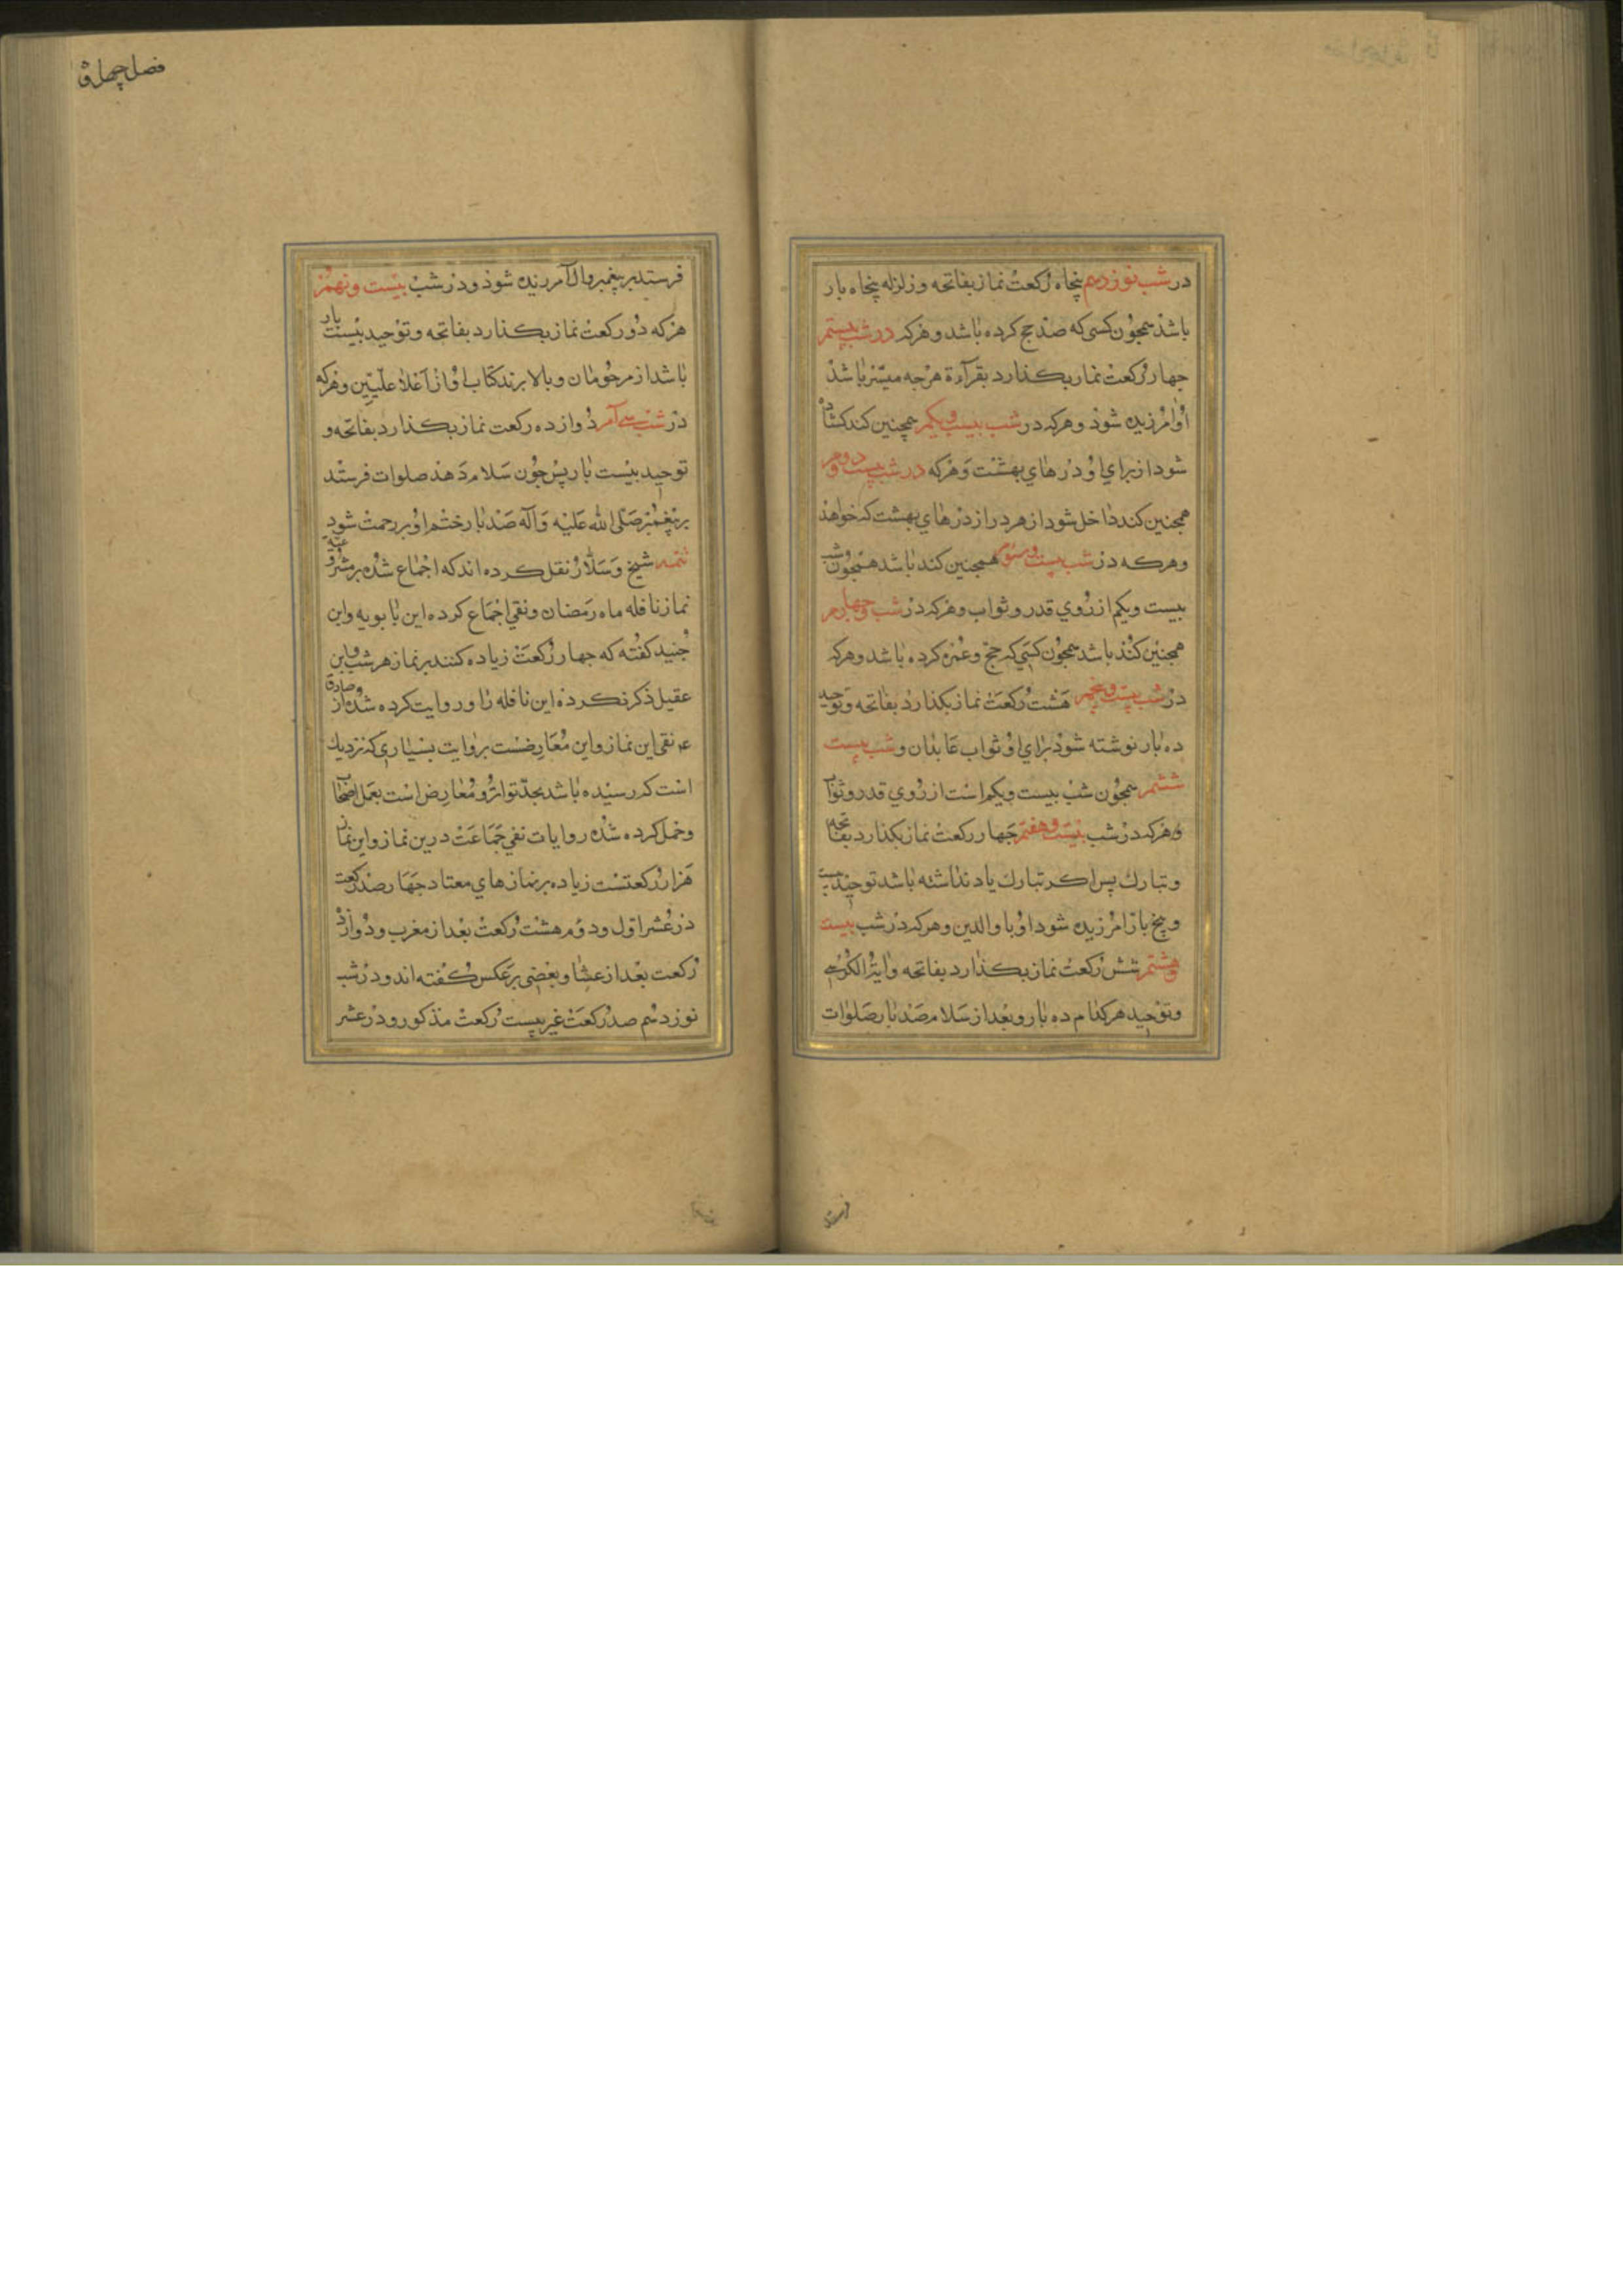 در شب نوزدهم پنجاه رکعت نماز بفاتحه و زلزله پنجاه بار
باشد همجون کسی که صد حج کرده باشد و هرکه در شب بیستم
جهار رکعت نماز بکذارد بقرآءة هرجه میسّر باشد
او امرزیده شود و هرکه در شب بیست ویکم همچنین کند کشاده
شود از برای او درهای بهشت و هرکه در شب بیست ودوم
همجنین کند داخل شود از هر در از درهای بهشت که خواهذ
و هرکه در شب بیست وسوم همجنین کند باشد همجون شب
بیست ویکم از روی قدر و ثواب و هرکه در شب وچهارم
همجنین کند باشد همجون کسی که حج وعمره کرده باشد وهرکه
در شب بیست وپنجم هشت رکعت نماز بکذارد بفاتحه وتوحید
ده بار نوشته شود برای او ثواب عابدان و شب بیست
ششم همجون شب بیست ویکم است از روی قدر وثواب
وهرکه در شب بیست وهفتم جهار رکعت نماز بکذارد بفاتحه
وتبارك پس اکر تبارك یاد نداشته باشد توحید بیست
وپنج بار امرزیده شود او با والدین وهرکه در شب بیست
وهشتم شش رکعت نماز بکذارد بفاتحه وایة الکرسی
وتوحید هرکدام ده بار وبعد از سلام صد بار صلوات
فرستد
فصل چهل
فرستد بر پیغمبر وال آمرزیده شود ودر شب بیست ونهم
هرکه دو رکعت نماز بکذارد بفاتحه وتوحید بیست بار
باشد از مرحومان وبالا برند کتاب او از آعلا علّیین وهرکه
در شب سی آم دوازده رکعت نماز بکذارد بفاتحه و
توحید بیست بار پس جون سلام دهد صلوات فرستد
بر پیغمبر صلی الله علیه وآله صد بار ختم او بر رحمت شود
تتمه شیخ وسلّار نقل کرده اند که اجماع شده بر مشروعیة
نماز نافله ماه رمضان ونفی اجماع کرده ابن بابویه وابن
جنید کفته که جهار رکعت زیاده کنند بر نماز هر شب وابن
عقیل ذکر نکرده این نافله را وروایت کرده شده از صادق
ع نفی این نماز واین معارضست بروایت بسیاری که نزدیك
است که رسیده باشد بحدّ تواتر ومعارض است بعمل اصحاب
وحمل کرده شده روایات نفی جماعت درین نماز واین نماز
هزار رکعتست زیاده بر نمازهای معتاد جهار صد رکعت
در عشر اوّل ودوم هشت رکعت بعد از مغرب ودوازده
رکعت بعد از عشا وبعضی بر عکس کفته اند ودر شب
نوزدهم صد رکعت غیر بیست رکعت مذکور ودر عشر